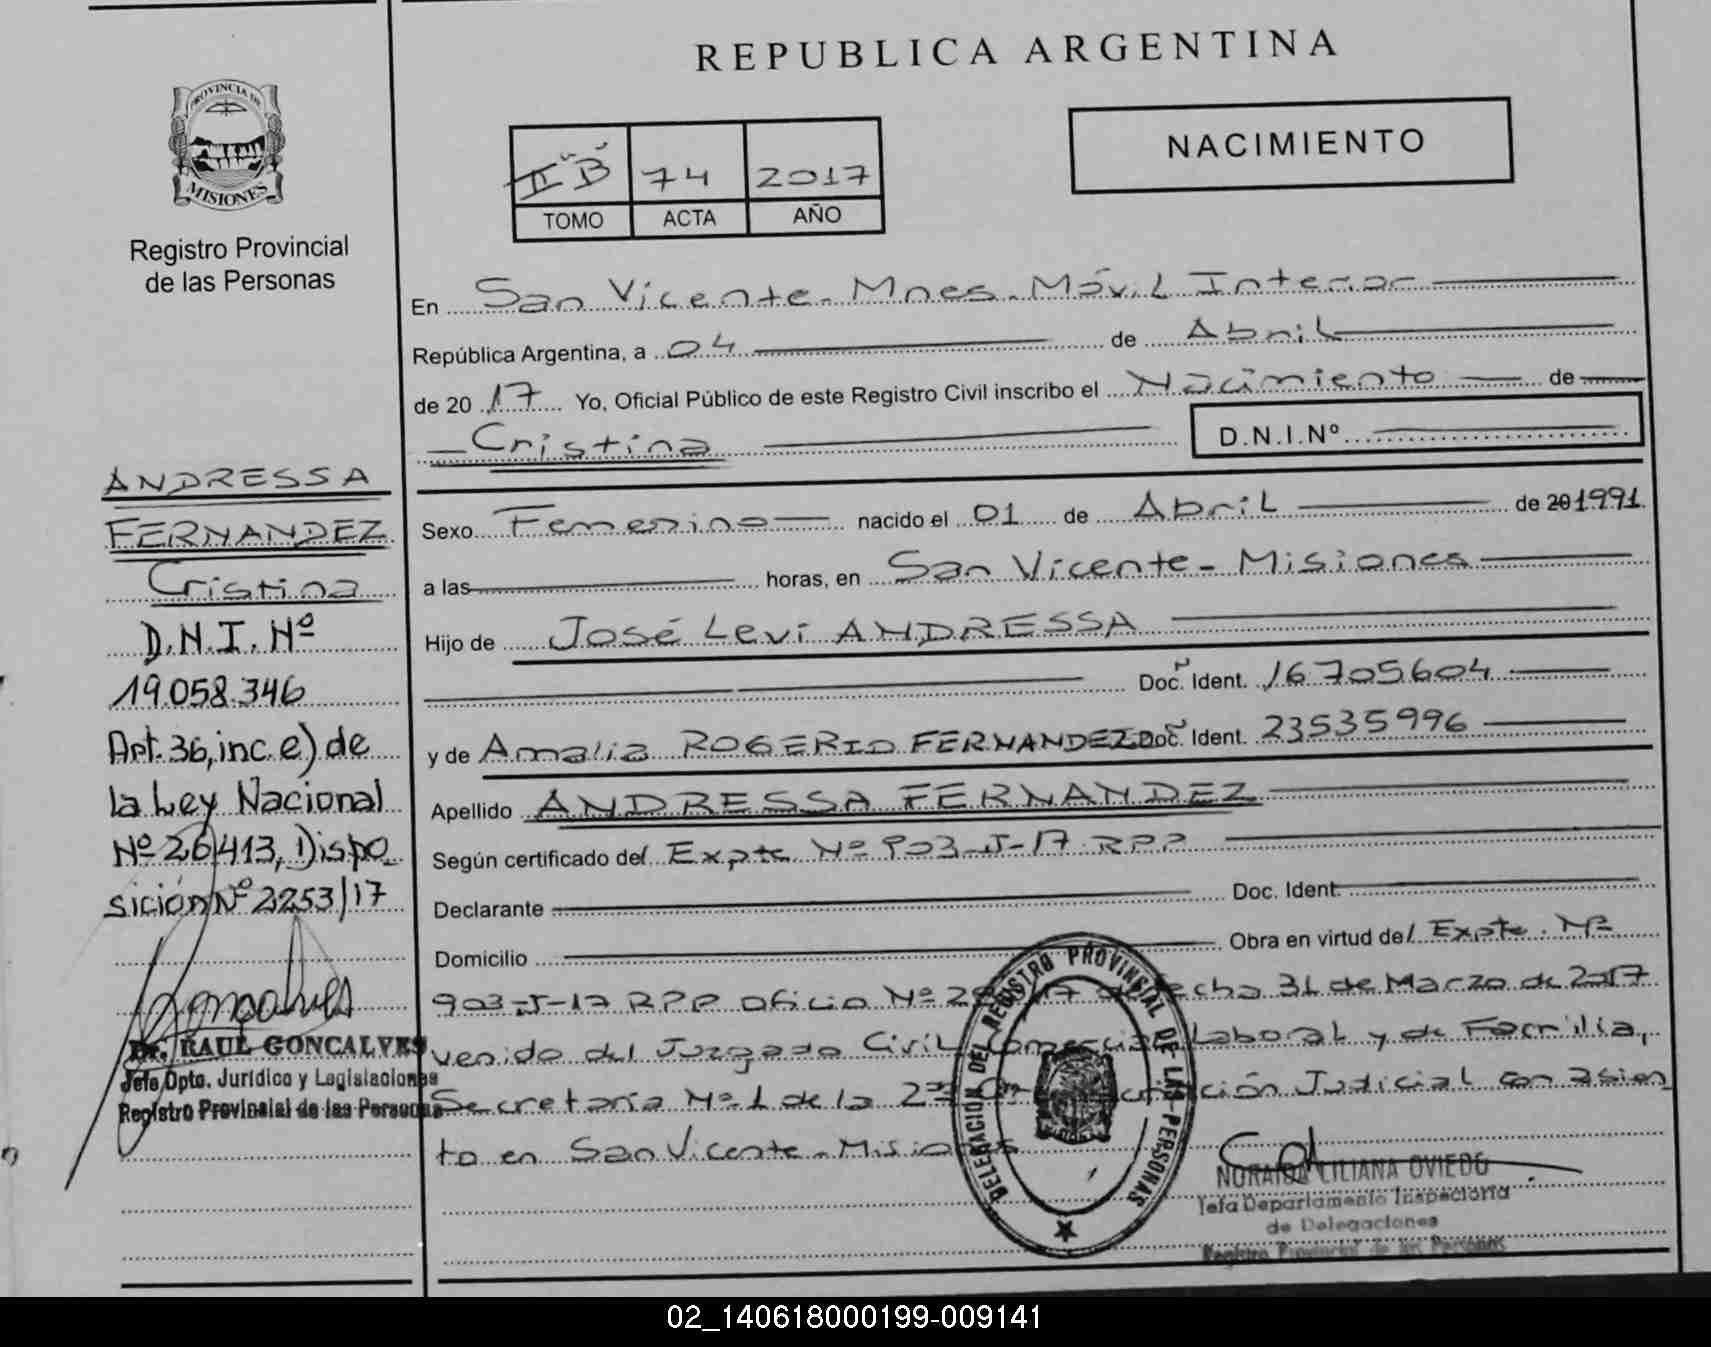 REPUBLICA ARGENTINA
PROVINCIA DE
MISIONES
Registro Provincial
de las Personas
II "B" 74 2017
TOMO ACTA AÑO
NACIMIENTO
En San Vicente - Mnes - Móvil Interior
República Argentina, a 04 de Abril
de 2017 Yo, Oficial Público de este Registro Civil inscribo el Nacimiento de
Cristina D.N.I.Nº
Sexo Femenino nacido el 01 de Abril de 20 1991.
a las horas, en San Vicente - Misiones
Hijo de José Levi ANDRESSA
Doc. Ident. 16705604
y de Amalia ROGERIO FERNANDEZ Doc. Ident. 23535996
Apellido ANDRESSA FERNANDEZ
Según certificado del Expte Nº 903-J-17 RPP
Declarante Doc. Ident.
Domicilio Obra en virtud del Expte. Nº
903-J-17 RPP Oficio Nº 17 de fecha 31 de Marzo de 2017
venido del Juzgado Civil, Comercial, Laboral y de Familia,
Secretaría Nº 1 de la 2da Judicial con asien
to en San Vicente - Misiones
ANDRESSA
FERNANDEZ
Cristina
D.N.I. Nº
19.058.346
Art. 36, inc. e) de
la Ley Nacional
Nº 26413, Dispo
sición Nº 2253/17
Dr. RAUL GONCALVES
Jefe Dpto. Jurídico y Legislaciones
Registro Provincial de las Personas
DELEGACION DEL REGISTRO PROVINCIAL DE LAS PERSONAS
NORAIDA LILIANA OVIEDO
Jefa Departamento Inspectoria
de Delegaciones
Registro Provincial de las Personas
02_140618000199-009141